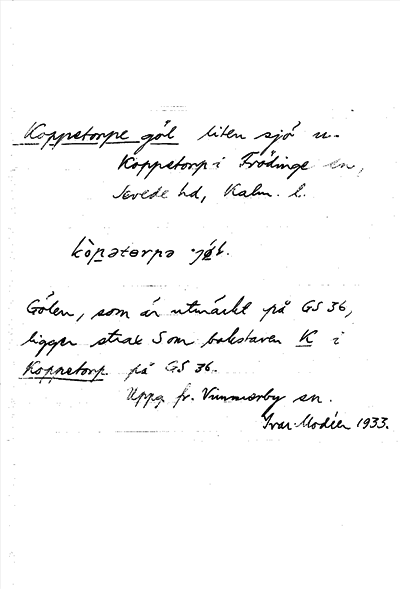 Koppetorpe göl liten sjö u.
Koppetorp i Frödinge sn,
Sevede hd, Kalm. l.
kòpₔtərpə ·jö́l.
Gölen, som är utmärkt på GS 36,
ligger strax S om bokstaven K i
Koppetorp på GS 36.
Uppg. fr. Vimmerby sn.
Ivar Modéer 1933.